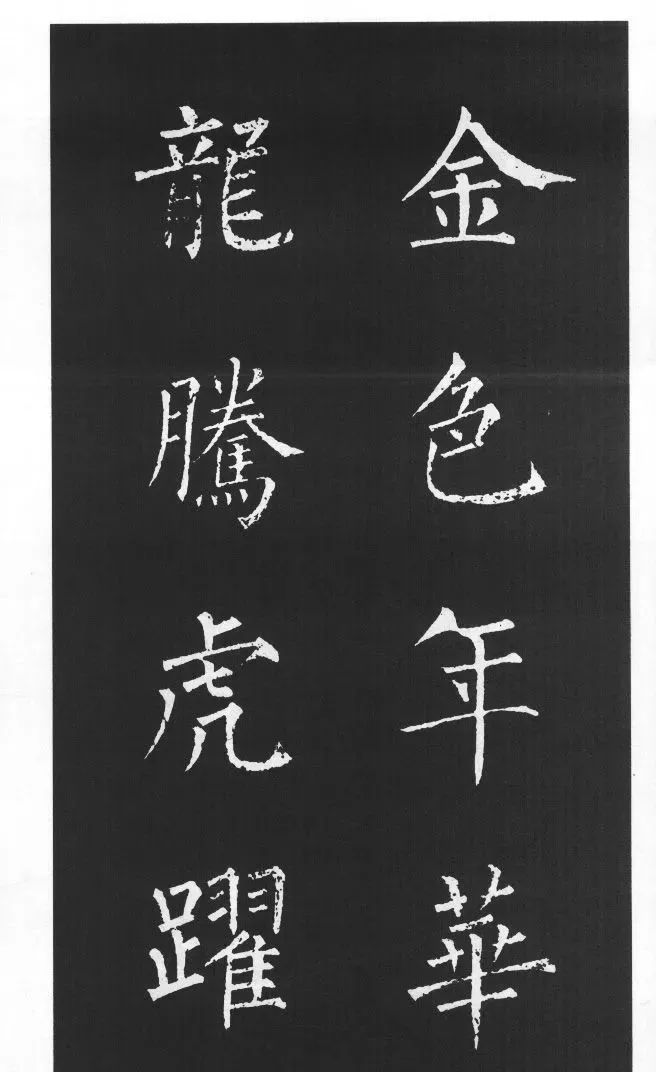 金色年華
龍騰虎躍